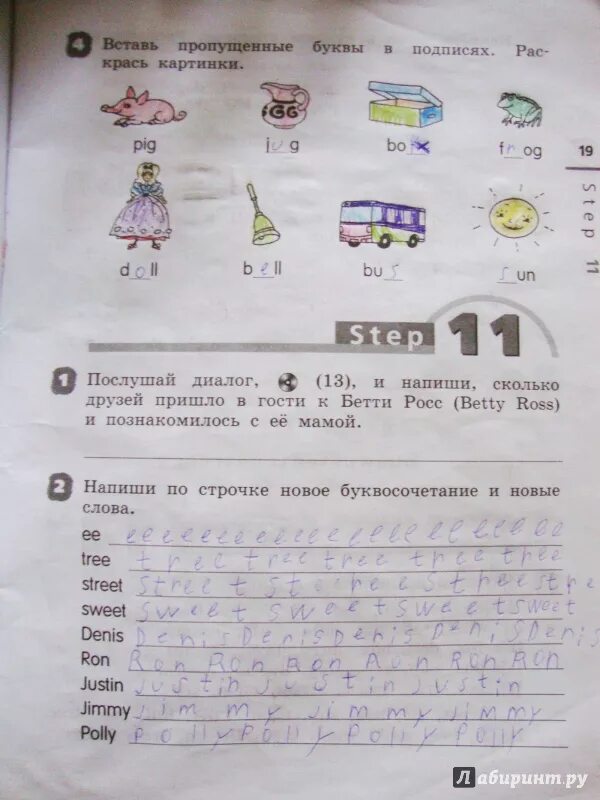 4 Вставь пропущенные буквы в подписях. Рас-
крась картинки.
GG
pig jug box frog
19
Step 11
doll bell bus sun
Step 11
1 Послушай диалог, (13), и напиши, сколько
друзей пришло в гости к Бетти Росс (Betty Ross)
и познакомилось с её мамой.
2 Напиши по строчке новое буквосочетание и новые
слова.
ee ee ee ee ee ee ee ee ee ee ee ee
tree tree tree tree tree tree
street street street street stre
sweet sweet sweet sweet sweet
Denis Denis Denis Denis Denis Denis
Ron Ron Ron Ron Ron Ron Ron
Justin Justin Justin Justin
Jimmy Jimmy Jimmy Jimmy
Polly Polly Polly Polly Polly
Лабиринт.ру